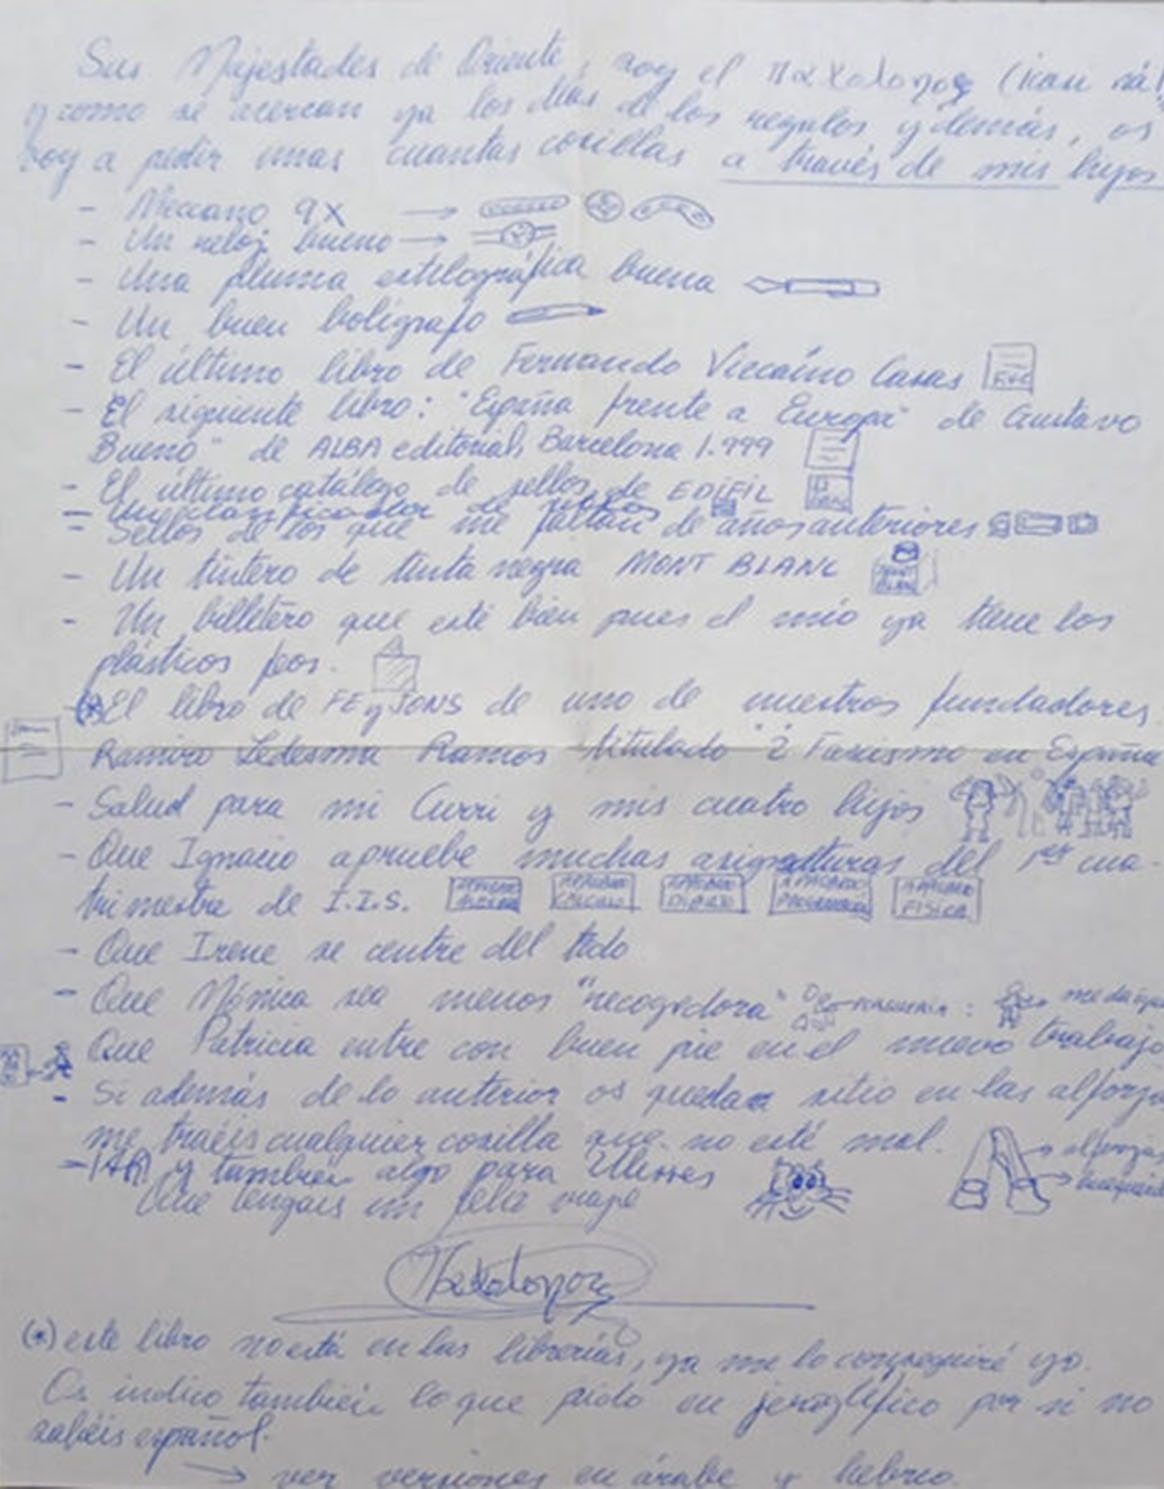 Sus Majestades de Oriente, soy el παχολογος
y como se acercan ya los días de los regalos y demás, os
voy a pedir unas cuantas cosillas a través de mis hijos
- Meccano 9X →
- Un reloj bueno →
- Una pluma estilográfica buena
- Un buen bolígrafo
- El último libro de Fernando Vizcaíno Casas
- El siguiente libro: "España frente a Europa" de Gustavo
Bueno" de ALBA editorial, Barcelona 1.999
- El último catálogo de sellos de EDIFIL
- Sellos de los que me faltan de años anteriores
- Un tintero de tinta negra MONT BLANC
MONT BLANC
- Un billetero que esté bien pues el mío ya tiene los
plásticos feos.
-(*)El libro de FE y JONS de uno de nuestros fundadores
Ramiro Ledesma Ramos titulado "¿Fascismo en España
- Salud para mi Curri y mis cuatro hijos
- Que Ignacio apruebe muchas asignaturas del 1er cua-
trimestre de I.I.S.
APROBADO CALCULO
APROBADO DIBUJO
APROBADO PROGRAMACION
APROBADO FISICA
- Que Irene se centre del todo
- Que Mónica sea menos "recogedora"
Que Patricia entre con buen pie en el nuevo trabajo
- Si además de lo anterior os quedan sitio en las alforjas
me traéis cualquier cosilla que no esté mal.
→ alforjas
- ¡AH! y también algo para Ulisses
Que tengáis un feliz viaje
(*) este libro no está en las librerías, ya me lo conseguiré yo.
Os indico también lo que pido en jeroglífico por si no
sabéis español.
→ ver versiones en árabe y hebreo.